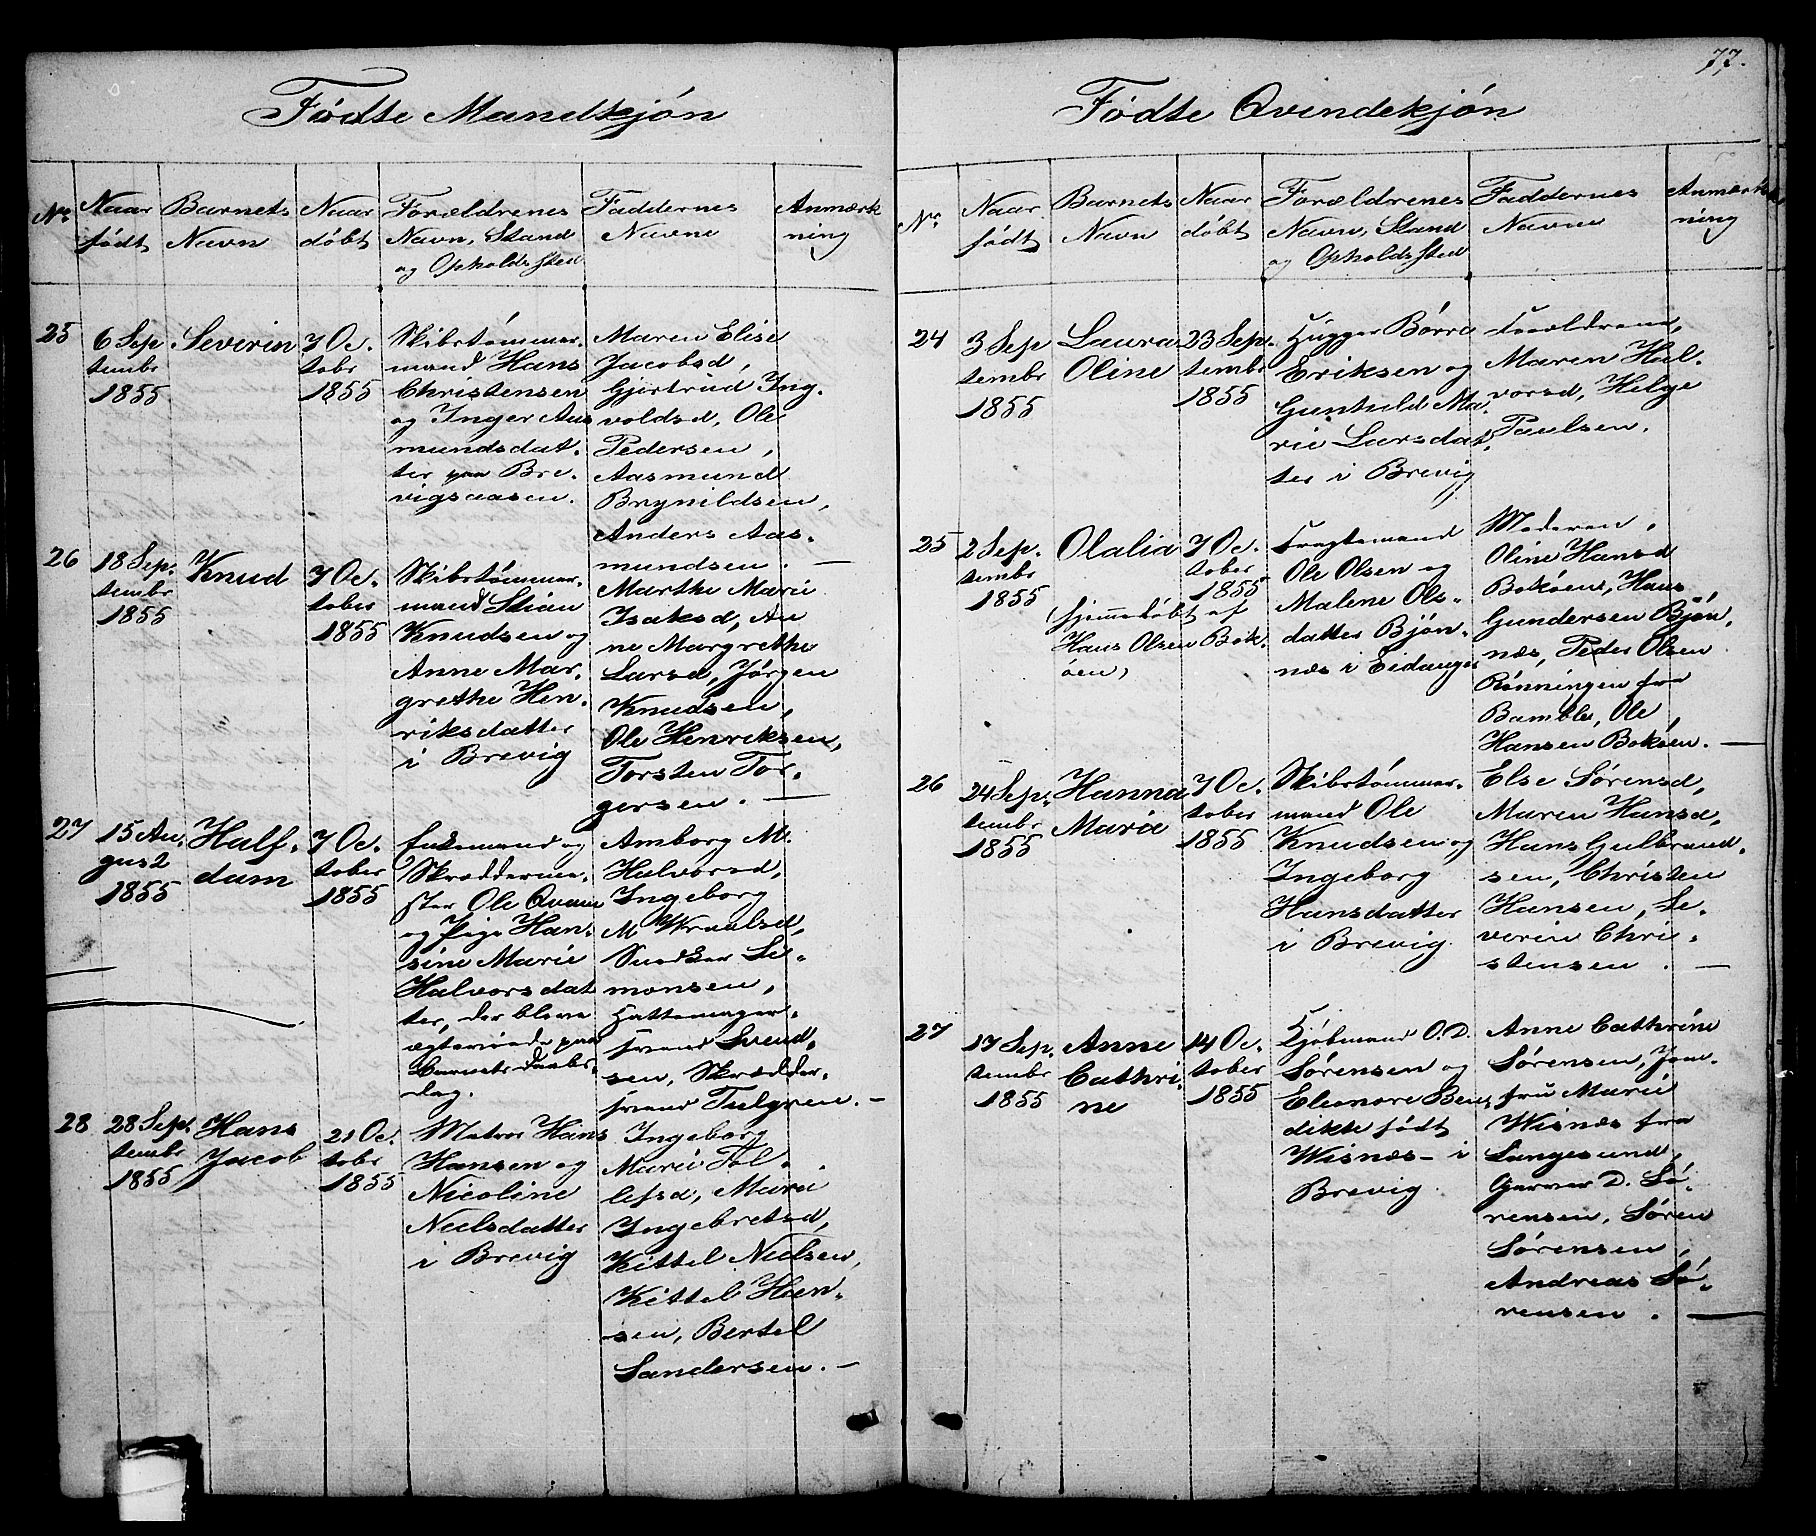 77.
Fødte Mandkjøn
No
Naar
født
Barnets
Navn
Naar
døbt
Forældrenes
Navn, Stand
og Opholdssted
Faddernes
Navne
Anmærk
ning
25
6 Sep
tembr
1855
Severin
7 Oc.
tobr
1855
Skibstømmer-
mand Hans
Christensen
og Inger Aas
mundsdat-
ter paa Bre-
vigsaasen.
Maren Elise
Jacobsd,
Gjertrud Ing-
voldsd, Ole
Pedersen,
Aasmund
Brynildsen,
Anders Aas-
mundsen. —
26
18 Sep.
tembr
1855
Knud
7 Oc.
tober
1855
Skibstømmer-
mand Stian
Knudsen og
Anne Mar-
grethe Hen-
riksdatter
i Brevig
Marthe Marie
Isaksd, An
ne Margrethe
Larsd, Jørgen
Knudsen,
Ole Henriksen,
Torsten Tor-
gersen. —
27
15 Au-
gust
1855
Half-
dam
7 Oc.
tober
1855
Enkemand og
Skræddermei-
ster Ole Qvam
og Pige Han-
sine Marie
Halvorsdat
ter, der bleve
ægteviede paa
Barnets Daabs-
dag.
Amborg M.
Halvorsd,
Ingeborg
M
Snedker Si-
monsen,
Hattemager-
svend Svend-
sen, Skrædder-
svend Tulgren. —
28
28 Sep.
tembr
1855
Hans
Jacob
21 Oc.
tobr
1855
Matros Hans
Hansen og
Nicoline
Nielsdatter
i Brevig
Ingeborg
Marie Tol-
lefsd, Maria
Ingebretsd,
Kittel Nielsen,
Kittel Han-
sen, Bertel
Sandersen. —
Fødte Qvindekjøn
No
Naar
født
Barnets
Navn
Naar
døbt
Forældrenes
Navn, Stand
og Opholdssted
Faddernes
Navne
Anmærk
ning
24
3 Sep
tembr
1855
Laura
Oline
23 Sep.
tembr
1855
Hugger Børre
Eriksen og
Gunhild Ma-
rie Larsdat
ter i Brevig
Forældrene,
Maren Hal-
vorsd, Helge
Paulsen.
25
2 Sep.
tembr
1855
Olalia
7 Oc.
tober
1855
Hjemmedøbt af
Hans Olsen Bok-
øen,
Fragtemand
Ole Olsen og
Malene Ols-
datter Bjøn-
næs i Eidanger
Moderen,
Oline Hansd
Bokøen, Hans
Gundersen Bjøn-
næs, Peder Olsen
Rønningen fra
Bamble, Ole
Hansen Bokøen. —
26
24 Sep.
tembr
1855
Hanna
Maria
7 Oc.
tober
1855
Skibstømmer-
mand Ole
Knudsen og
Ingeborg
Hansdatter
i Brevig
Else Sørensd,
Maren Hansd,
Hans Gulbrand-
sen, Christen
Hansen, Se-
verin Chri-
stensen. —
27
17 Sep.
tembr
1855
Anne
Cathri-
ne
14 Oc.
tober
1855
Kjøbmand O. D.
Sørensen og
Eleonore Bene
dikte født
Wisnæs - i
Brevig
Anne Cathrine
Sørensen, Jom-
fru Marie
Wisnæs fra
Langesund,
Garver D. Sø-
rensen, Søren
Sørensen,
Andreas Sø-
rensen. —